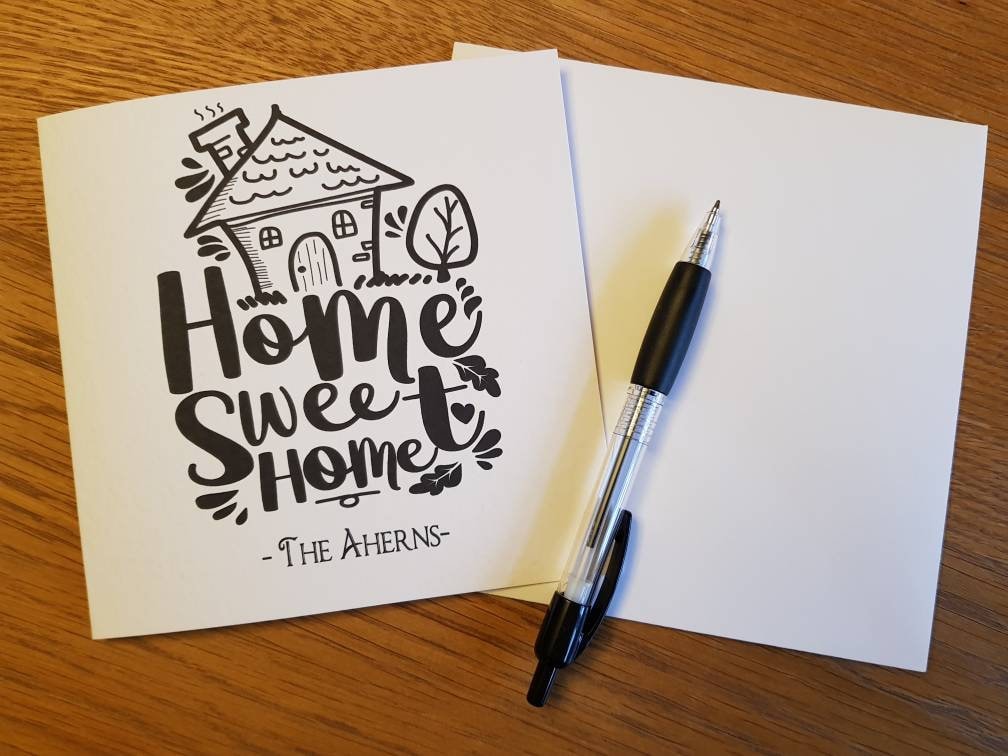 Home
Sweet
Home
- The Aherns-